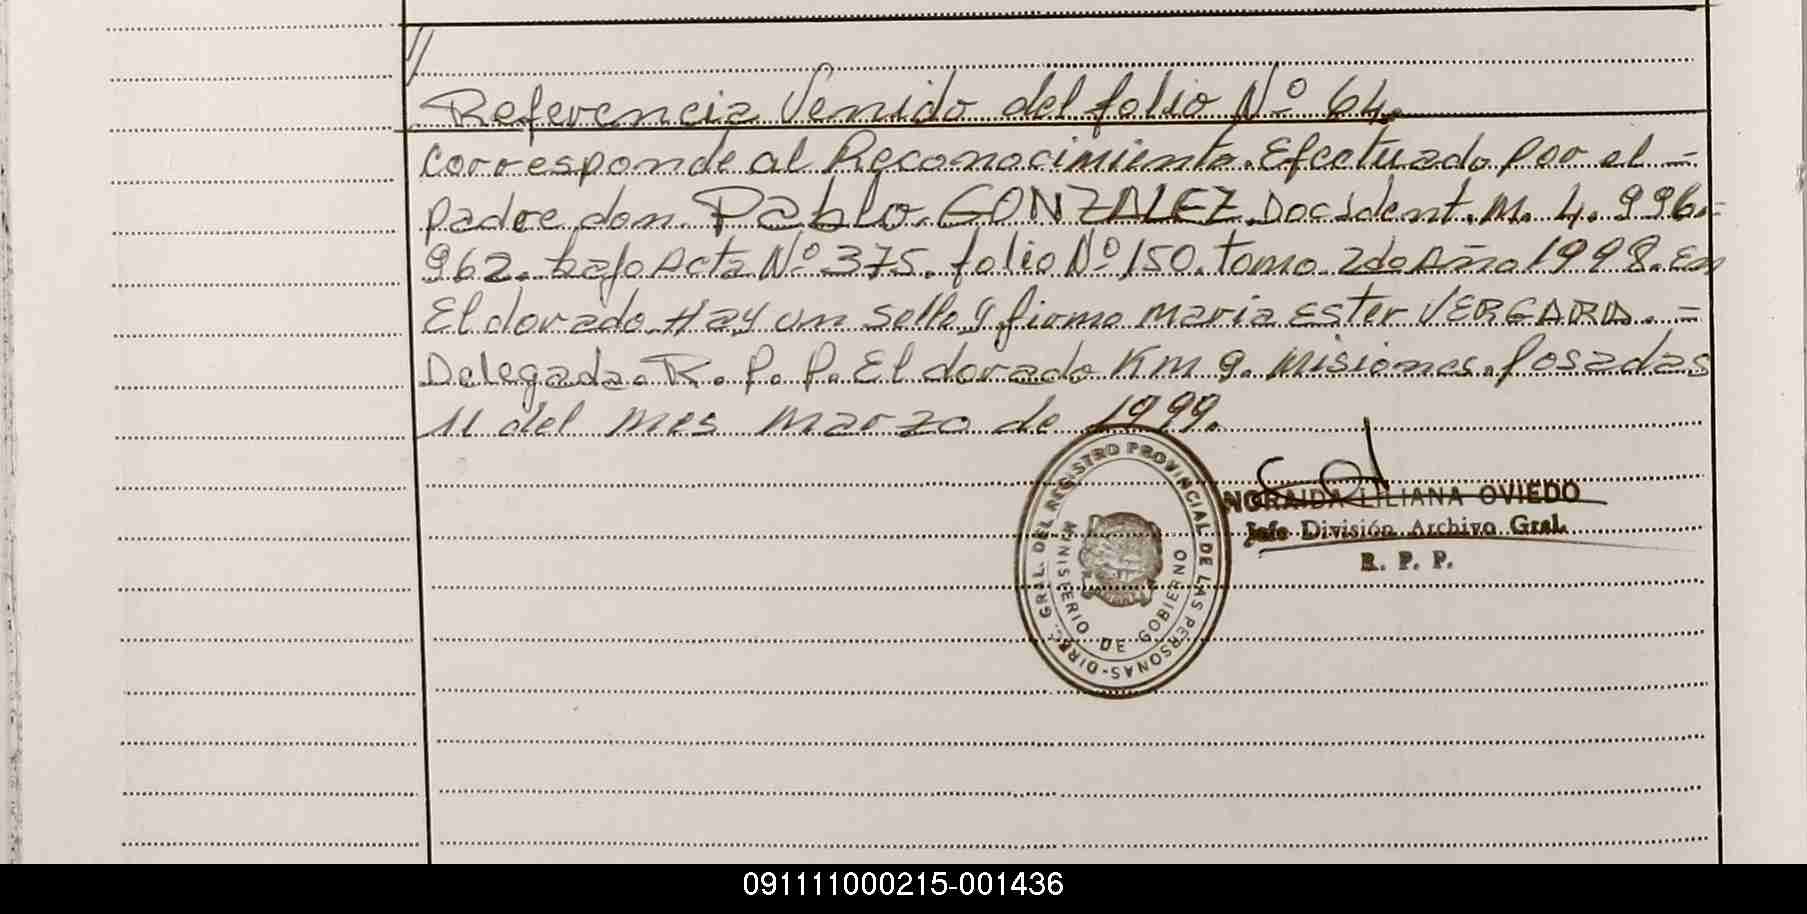 //
Referencia Venido del folio Nº 64.
Corresponde al Reconocimiento. Efectuado por el =
padre don. Pablo. GONZALEZ. Doc Ident. M. 4. 996.=
962. bajo Acta Nº 375. folio Nº 150. tomo. 2do Año 1998. En
El dorado. Hay un sello y firma Maria Ester VERGARA. =
Delegada. R. P. P. El dorado Km 9. Misiones. Posadas
11 del mes Marzo de 1999.
DIREC. GRAL. DEL REGISTRO PROVINCIAL DE LAS PERSONAS-
MINISTERIO DE GOBIERNO
NORAIDA LILIANA OVIEDO
Jefe División Archivo Gral.
R. P. P.
091111000215-001436